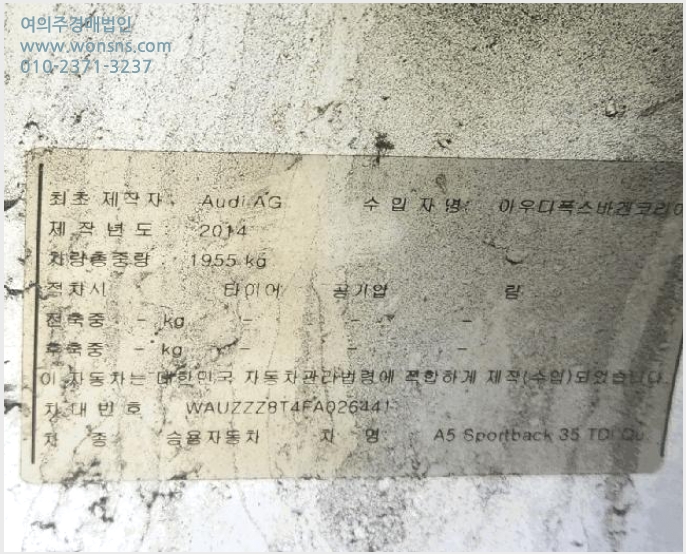 여의주경매법인
www.wonsns.com
010-2371-3237
최초 제작자 : Audi AG 수 입 자 명: 아우디폭스바겐코리아
제 작 년 도 : 2014
차량총중량 : 1955 kg
적차시 타이어 공기압 림
전축중 - kg - - -
후축중 - kg - - -
이 자동차는 대한민국 자동차관리법령에 적합하게 제작(수입)되었습니다.
차 대 번 호 WAUZZZ8T4FA026441
차 종: 승용자동차 차 명: A5 Sportback 35 TDI Qu